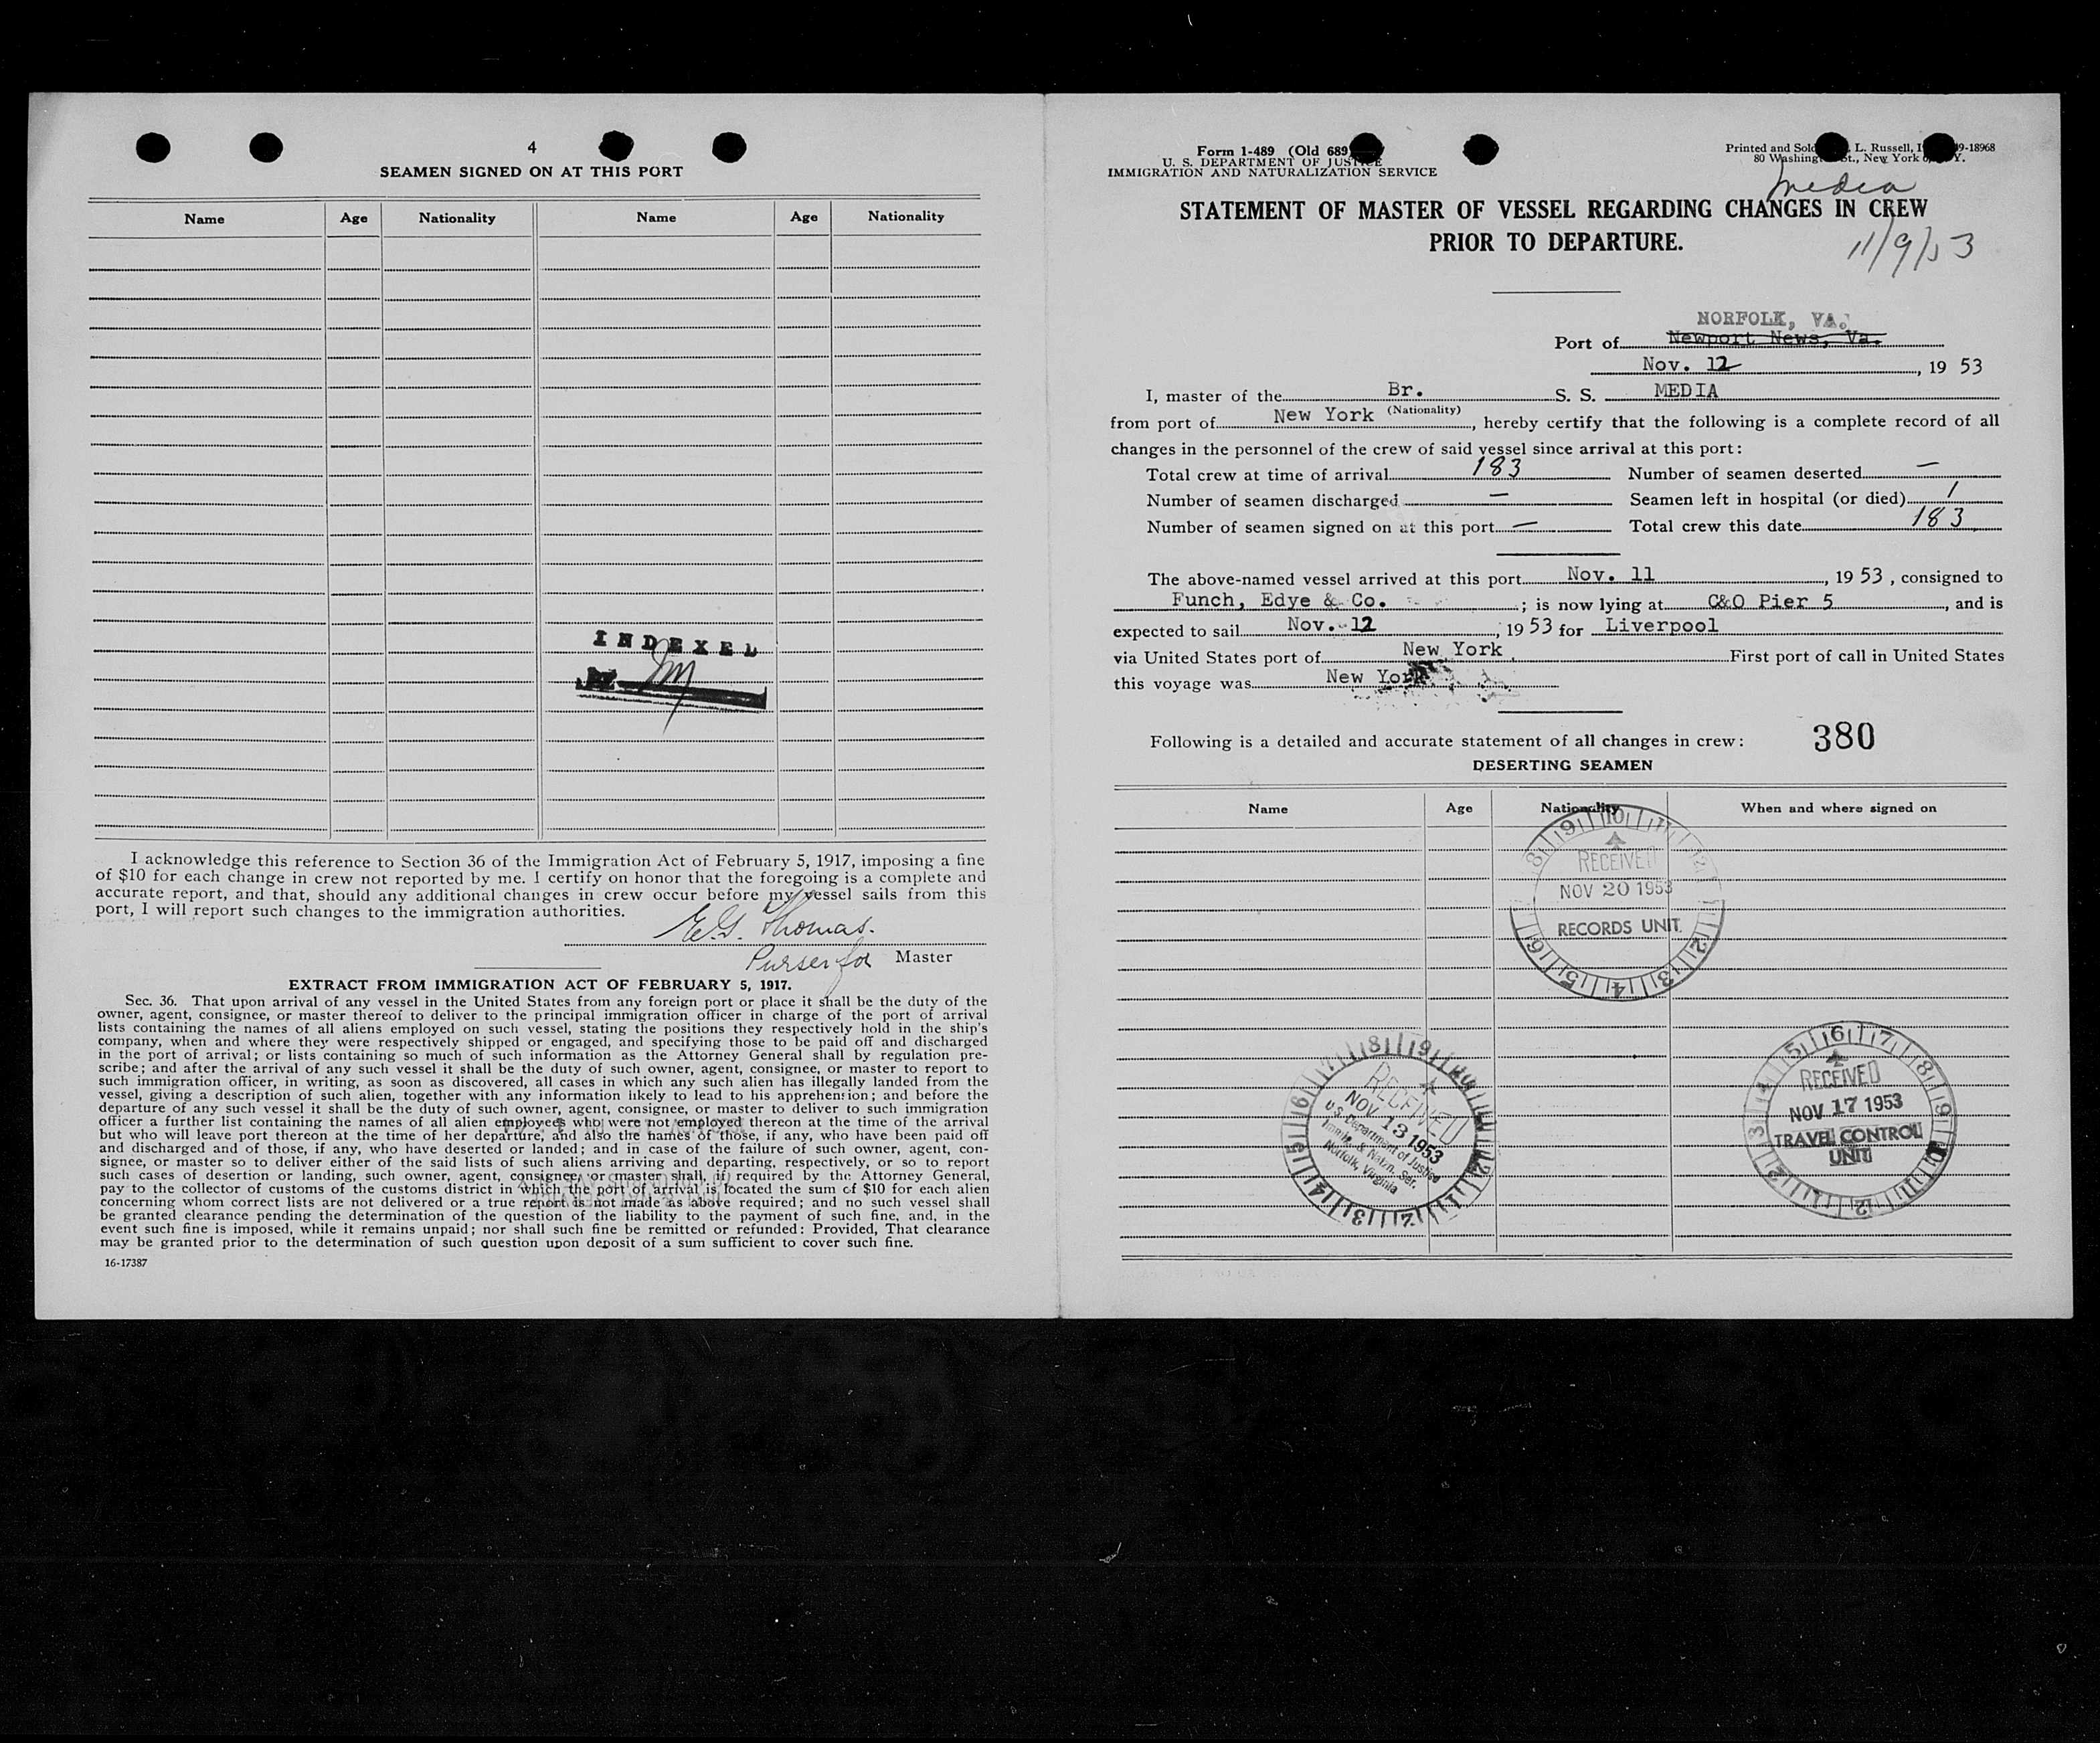 4
SEAMEN SIGNED ON AT THIS PORT
Name Age Nationality Name Age Nationality
INDEXED
I acknowledge this reference to Section 36 of the Immigration Act of February 5, 1917, imposing a fine
of $10 for each change in crew not reported by me. I certify on honor that the foregoing is a complete and
accurate report, and that, should any additional changes in crew occur before my vessel sails from this
port, I will report such changes to the immigration authorities.
E.G. Thomas.
Purser for Master
EXTRACT FROM IMMIGRATION ACT OF FEBRUARY 5, 1917.
Sec. 36. That upon arrival of any vessel in the United States from any foreign port or place it shall be the duty of the
owner, agent, consignee, or master thereof to deliver to the principal immigration officer in charge of the port of arrival
lists containing the names of all aliens employed on such vessel, stating the positions they respectively hold in the ship's
company, when and where they were respectively shipped or engaged, and specifying those to be paid off and discharged
in the port of arrival; or lists containing so much of such information as the Attorney General shall by regulation pre-
scribe; and after the arrival of any such vessel it shall be the duty of such owner, agent, consignee, or master to report to
such immigration officer, in writing, as soon as discovered, all cases in which any such alien has illegally landed from the
vessel, giving a description of such alien, together with any information likely to lead to his apprehension; and before the
departure of any such vessel it shall be the duty of such owner, agent, consignee, or master to deliver to such immigration
officer a further list containing the names of all alien employees who were not employed thereon at the time of the arrival
but who will leave port thereon at the time of her departure, and also the names of those, if any, who have been paid off
and discharged and of those, if any, who have deserted or landed; and in case of the failure of such owner, agent, con-
signee, or master so to deliver either of the said lists of such aliens arriving and departing, respectively, or so to report
such cases of desertion or landing, such owner, agent, consignee, or master shall, if required by the Attorney General,
pay to the collector of customs of the customs district in which the port of arrival is located the sum of $10 for each alien
concerning whom correct lists are not delivered or a true report is not made as above required; and no such vessel shall
be granted clearance pending the determination of the question of the liability to the payment of such fine, and, in the
event such fine is imposed, while it remains unpaid; nor shall such fine be remitted or refunded: Provided, That clearance
may be granted prior to the determination of such question upon deposit of a sum sufficient to cover such fine.
16-17387
Form I-489 (Old 689
U. S. DEPARTMENT OF JUSTICE
IMMIGRATION AND NATURALIZATION SERVICE
Printed and Sold L. Russell, 9-18968
80 Washington St., New York 6, N. Y.
Media
STATEMENT OF MASTER OF VESSEL REGARDING CHANGES IN CREW
PRIOR TO DEPARTURE.
11/9/53
NORFOLK, VA.
Port of Newport News, Va.
Nov. 12, 19 53
I, master of the Br. S. S. MEDIA
(Nationality)
from port of New York, hereby certify that the following is a complete record of all
changes in the personnel of the crew of said vessel since arrival at this port:
Total crew at time of arrival 183 Number of seamen deserted —
Number of seamen discharged — Seamen left in hospital (or died) 1
Number of seamen signed on at this port — Total crew this date 183
The above-named vessel arrived at this port Nov. 11, 19 53, consigned to
Funch, Edye & Co.; is now lying at C&O Pier 5, and is
expected to sail Nov. 12, 19 53 for Liverpool
via United States port of New York First port of call in United States
this voyage was New York
Following is a detailed and accurate statement of all changes in crew: 380
DESERTING SEAMEN
Name Age Nationality When and where signed on
RECEIVED
NOV 20 1953
RECORDS UNIT
RECEIVED
NOV 13 1953
U.S. Department of Justice
Immig. & Natzn. Ser.
Norfolk, Virginia
RECEIVED
NOV 17 1953
TRAVEL CONTROL
UNIT